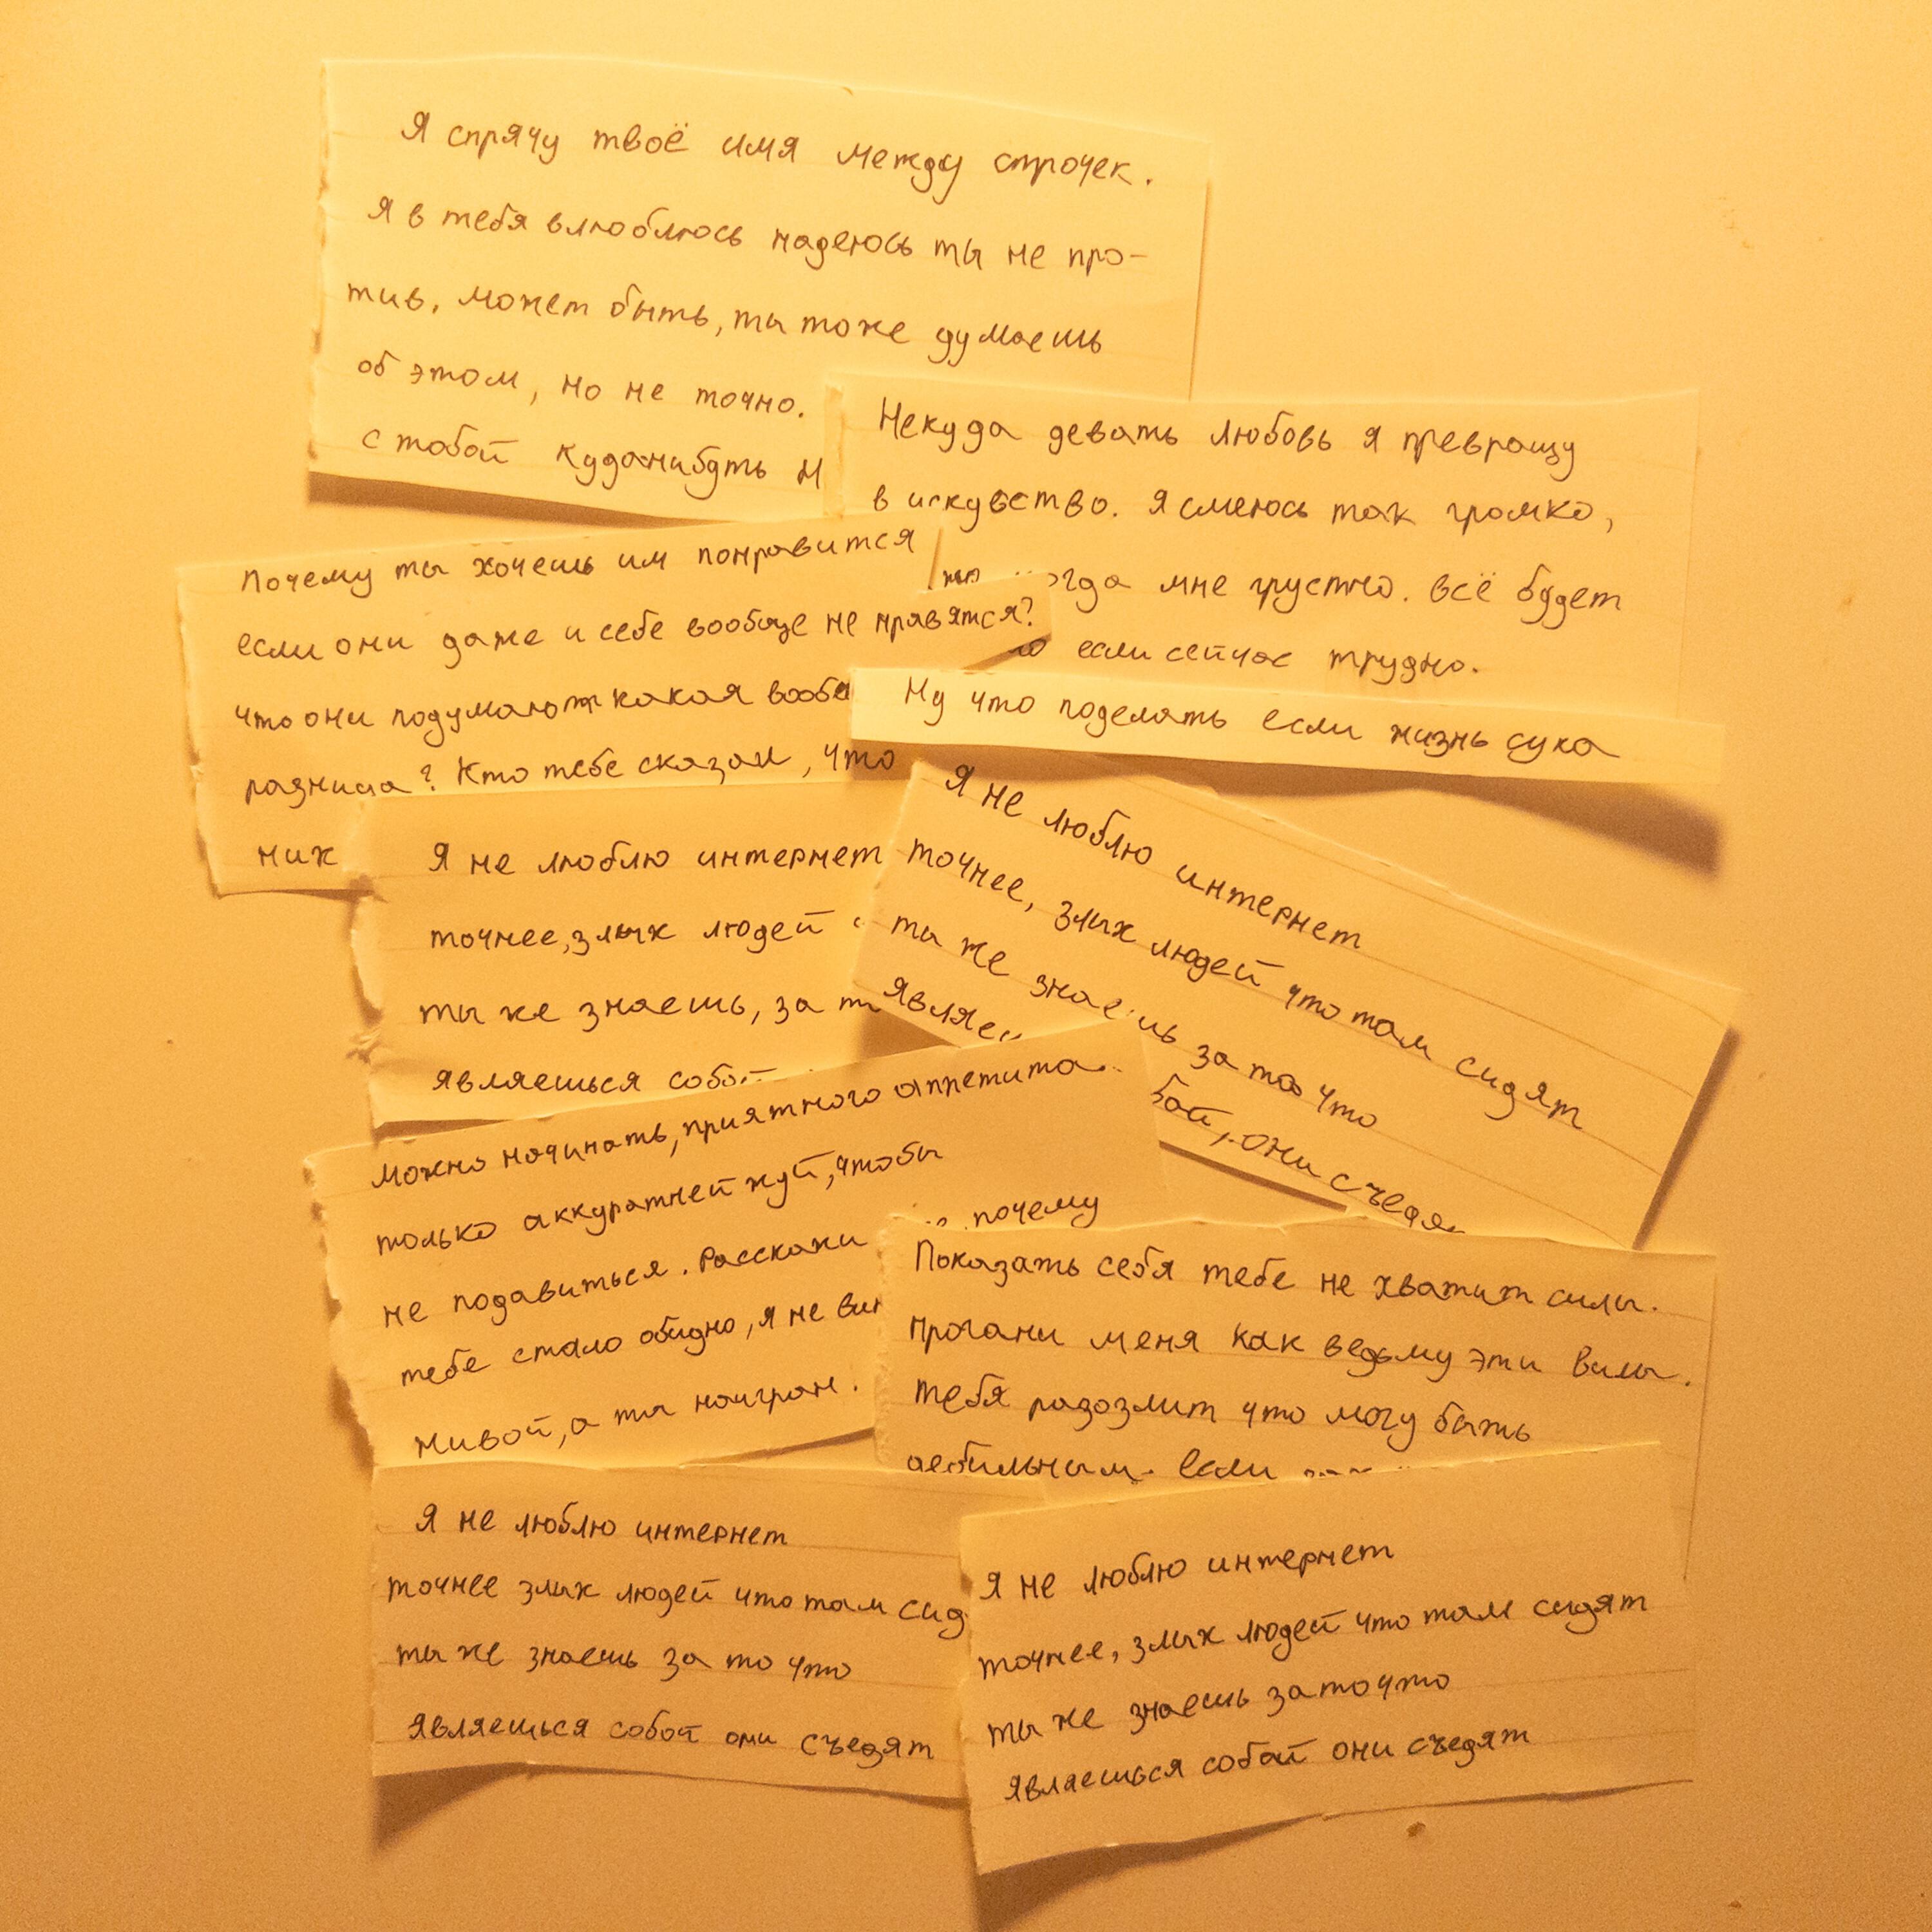 Я спрячу твоё имя между строчек.
Я в тебя влюблюсь надеюсь ты не про-
тив, может быть, ты тоже думаешь
об этом, но не точно.
с тобой куданибудть
Некуда девать любовь я превращу
в искувство. Я смеюсь так громко,
мне грустно. всё будет
если сейчас трудно.
Почему ты хочешь им понравится
если они даже и себе вообще не нравятся?
что они подумают какая
разница? Кто тебе сказал, что
ник
Ну что поделать если жизнь сука
Я не люблю интернет
точнее, злых людей
ты же знаешь, за
являешься
Я не люблю интернет
точнее, злых людей что там сидят
ты же за то что
они съедят
Можно начинать, приятного аппетита.
только аккуратней жуй, чтобы
не подавиться. Расскажи почему
тебе стало обидно, я не
живой, а ты наигран.
Показать себя тебе не хватит силы.
прогони меня как ведьму эти вилы.
тебя разозлит что могу быть
если
Я не люблю интернет
точнее злых людей что там
ты же знаешь за то что
являешься собой они съедят
Я не люблю интернет
точнее, злых людей что там сидят
ты же знаешь за то что
являешься собой они съедят